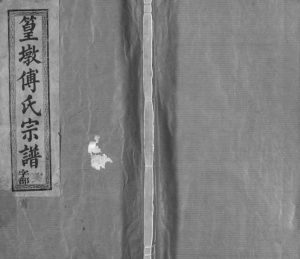 篁墩傅氏宗譜